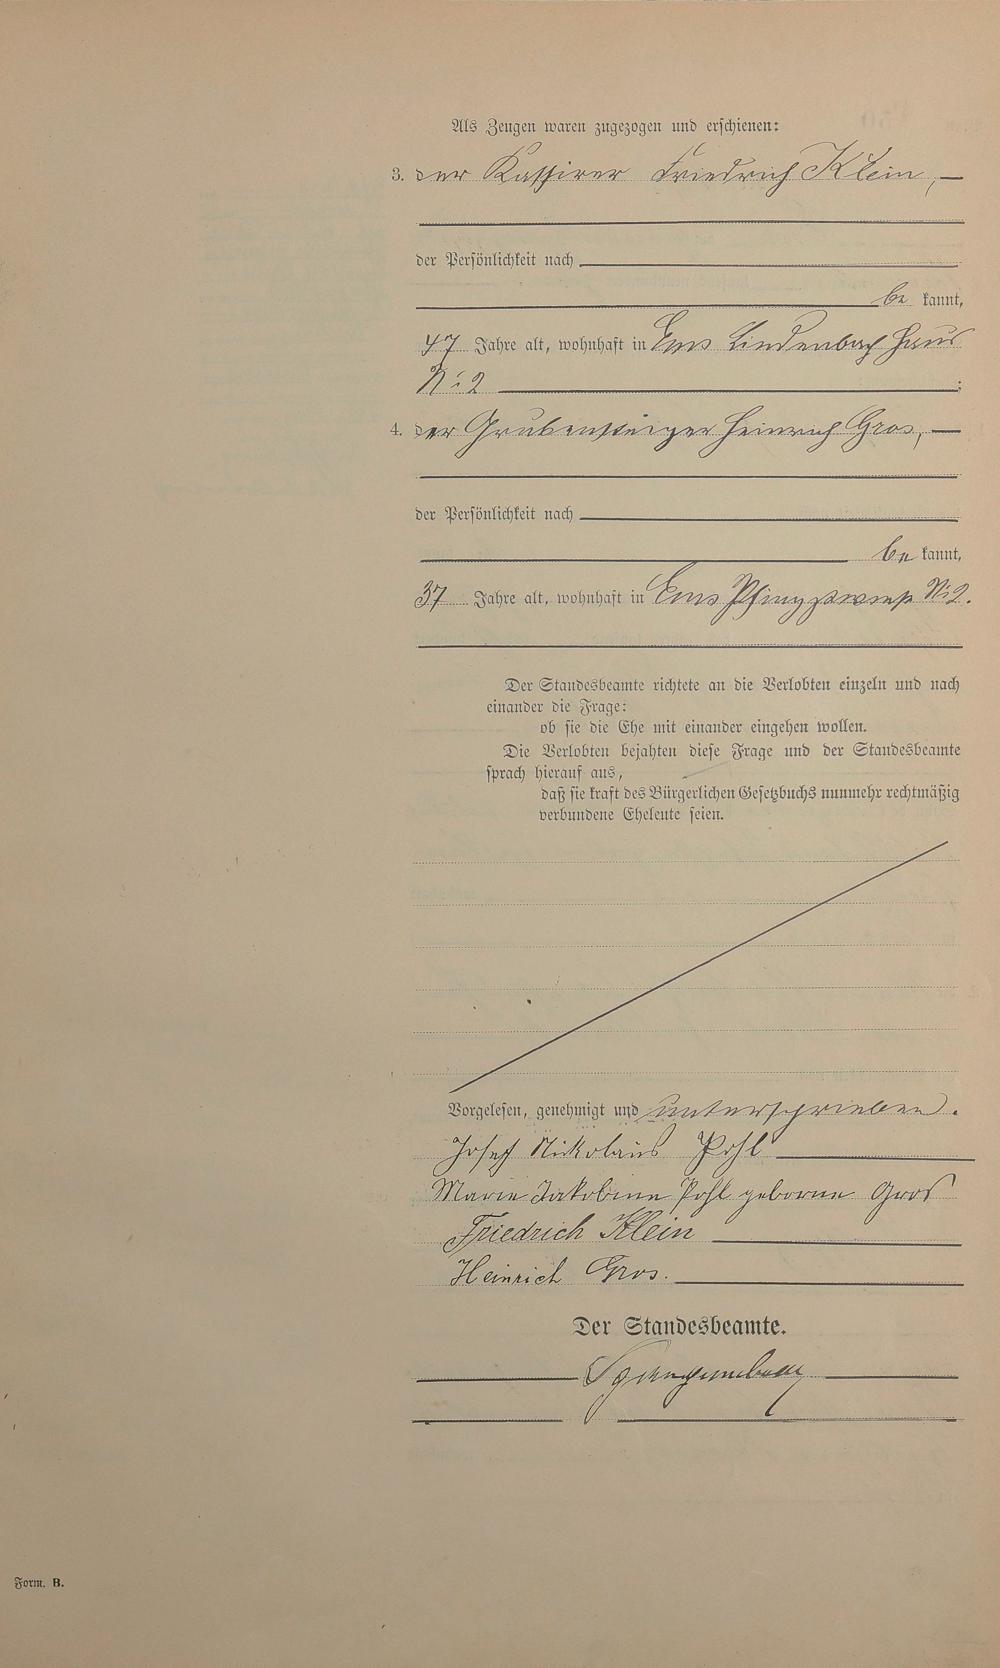 Als Zeugen waren zugezogen und erschienen:
3. der Kassirer Friedrich Klein,
der Persönlichkeit nach
be kannt,
47 Jahre alt, wohnhaft in Ems Lindenbach Haus
N: 2 ;
4. der Grubensteiger Heinrich Gros,
der Persönlichkeit nach
be kannt,
37 Jahre alt, wohnhaft in Ems N: 2.
Der Standesbeamte richtete an die Verlobten einzeln und nach
einander die Frage:
ob sie die Ehe mit einander eingehen wollen.
Die Verlobten bejahten diese Frage und der Standesbeamte
sprach hierauf aus,
daß sie kraft des Bürgerlichen Gesetzbuchs nunmehr rechtmäßig
verbundene Eheleute seien.
Vorgelesen, genehmigt und unterschrieben.
Josef Nikolaus Pohl
Marie Jakobine Pohl geborne Gros
Friedrich Klein
Heinrich Gros.
Der Standesbeamte.
Form. B.